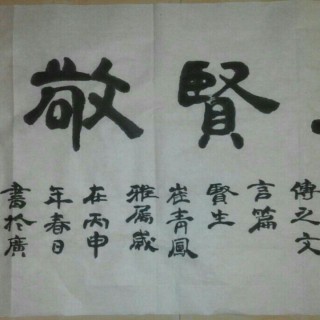 賢敬
傳之文
言篇
賢生
崔青鳳
雅属歲
在丙申
年春日
書於廣